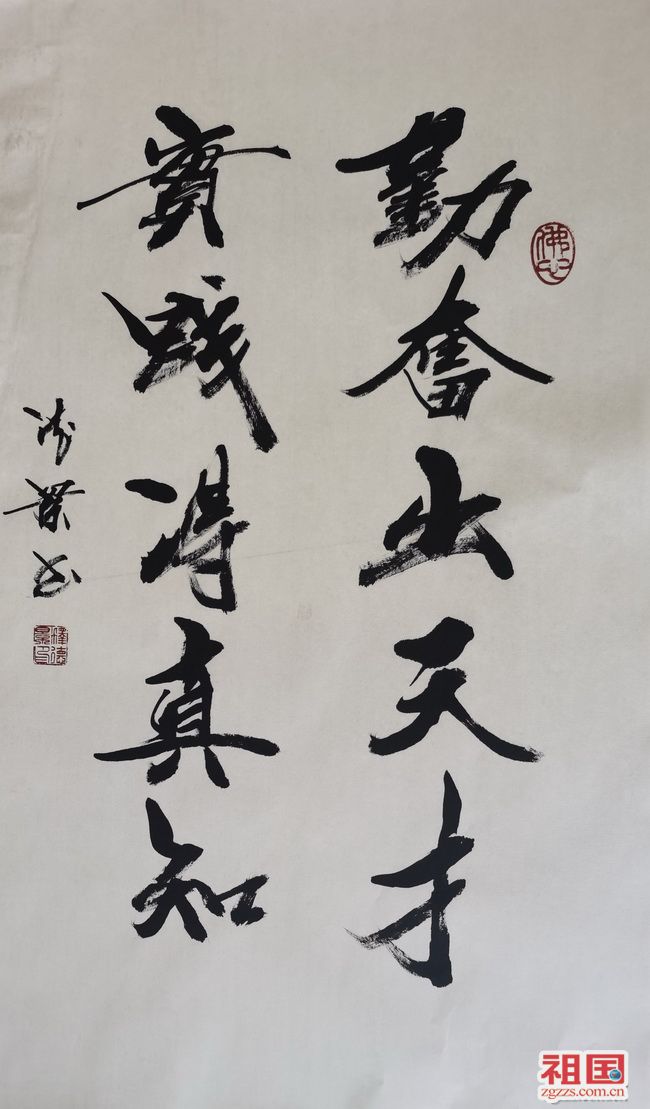 勤奮出天才
實踐得真知
佛心
祖国
zgzzs.com.cn